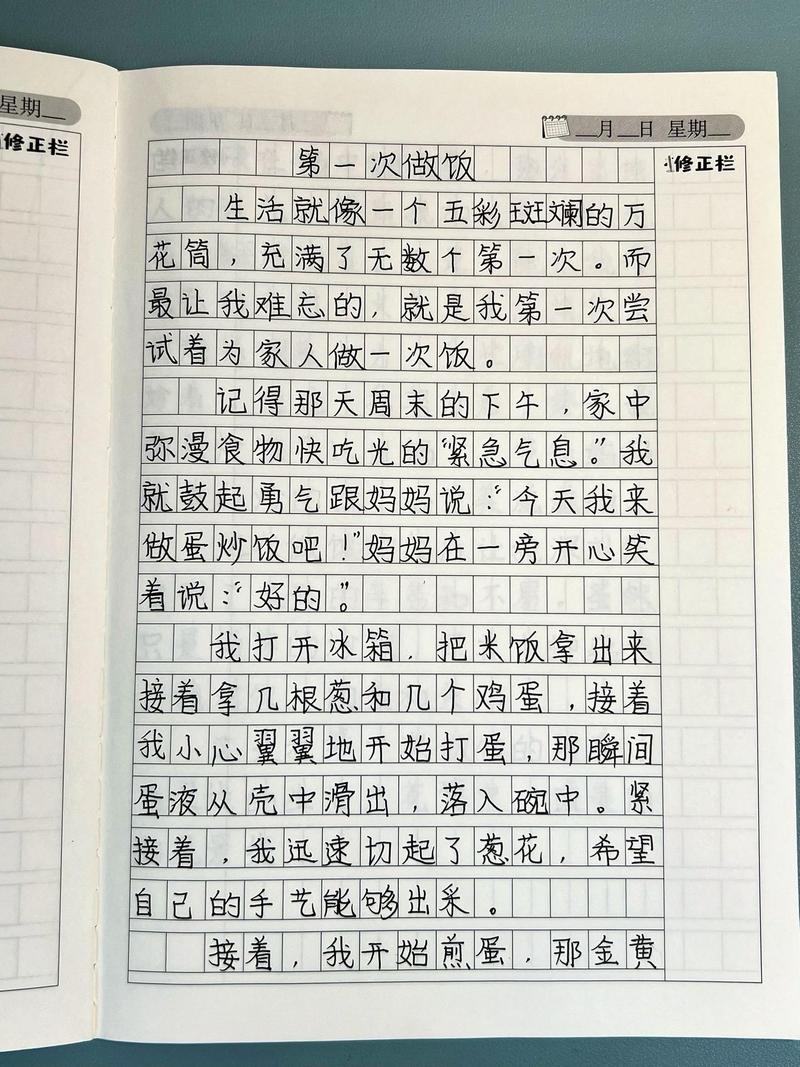 星期__
修正栏
__月__日 星期__
修正栏
第一次做饭
生活就像一个五彩斑斓的万
花筒，充满了无数个第一次。而
最让我难忘的，就是我第一次尝
试着为家人做一次饭。
记得那天周末的下午，家中
弥漫食物快吃光的“紧急气息”。我
就鼓起勇气跟妈妈说：“今天我来
做蛋炒饭吧！”妈妈在一旁开心笑
着说：“好的”。
我打开冰箱，把米饭拿出来
接着拿几根葱和几个鸡蛋，接着
我小心翼翼地开始打蛋，那瞬间
蛋液从壳中滑出，落入碗中。紧
接着，我迅速切起了葱花，希望
自己的手艺能够出采。
接着，我开始煎蛋，那金黄